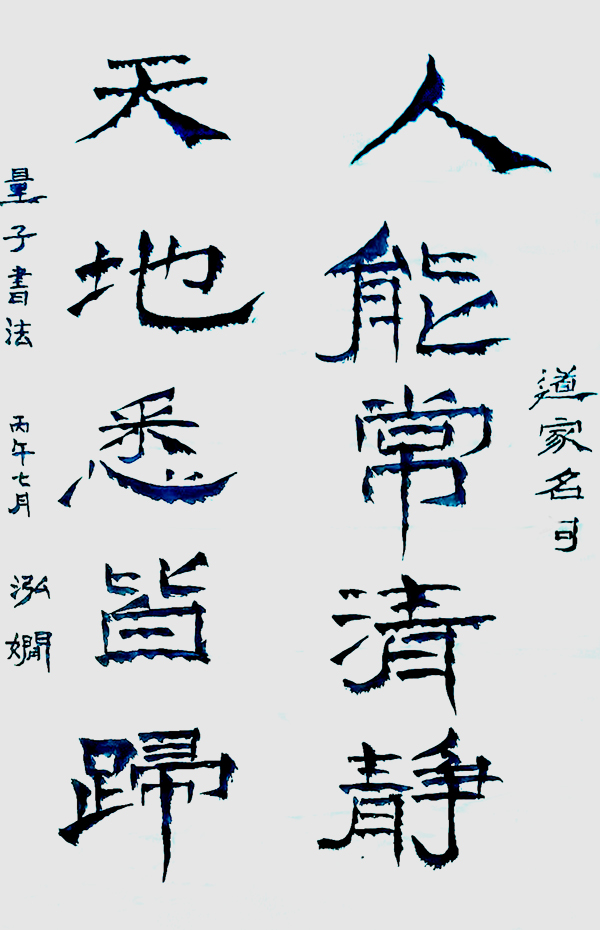 道家名可
人能常清靜
天地悉皆歸
量子書法 丙午七月 泓嫺